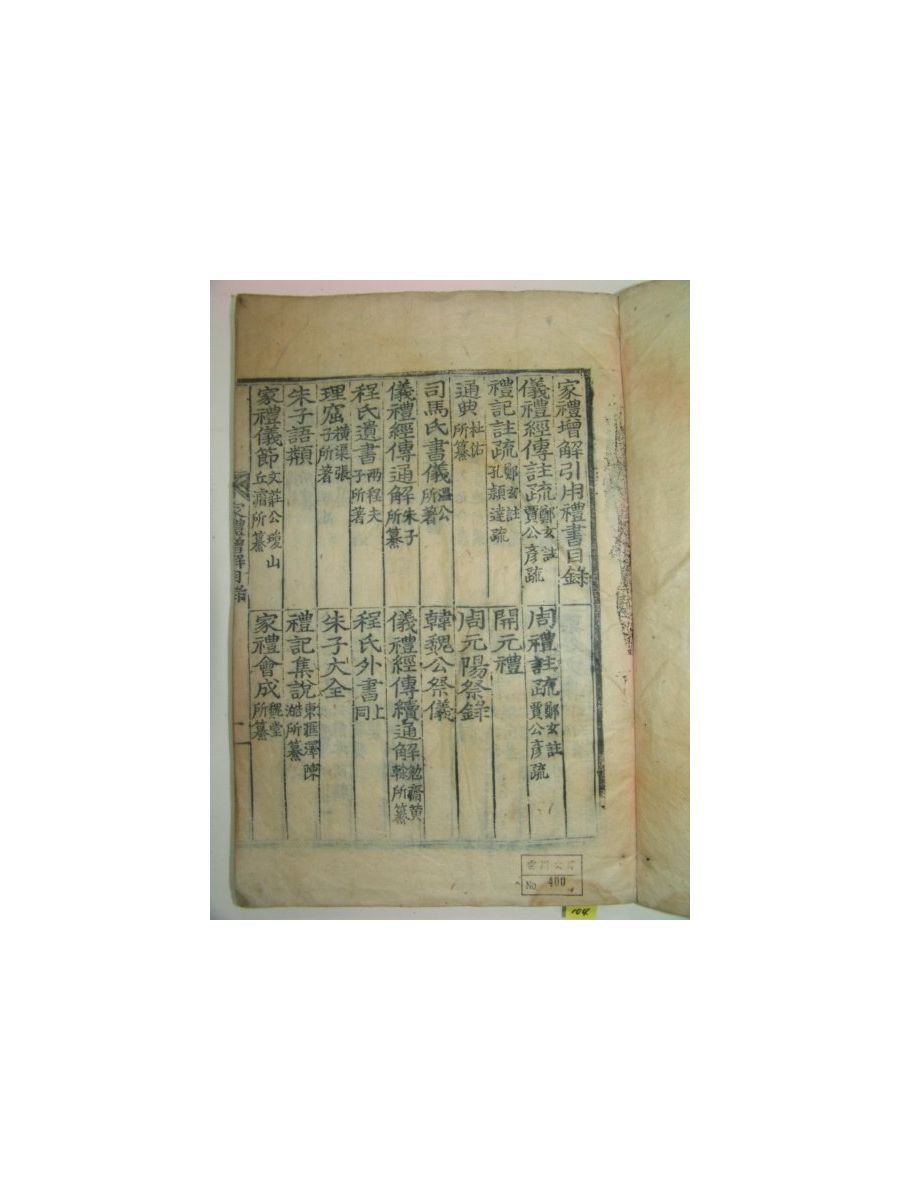 家禮增解引用禮書目錄
儀禮經傳註疏 鄭玄註 賈公彥疏
周禮註疏 鄭玄註 賈公彥疏
禮記註疏 鄭玄註 孔穎達疏
開元禮
通典 杜佑所纂
周元陽祭錄
司馬氏書儀 溫公所著
韓魏公祭儀
儀禮經傳通解 朱子所纂
儀禮經傳續通解 勉齋黃榦所纂
程氏遺書 兩程夫子所著
程氏外書 上同
理窟 橫渠張子所著
朱子大全
朱子語類
禮記集說 東匯澤陳澔所纂
家禮儀節 文莊公瓊山丘濬所纂
家禮會成 魏堂所纂
家禮增解目錄
一
No 400
104